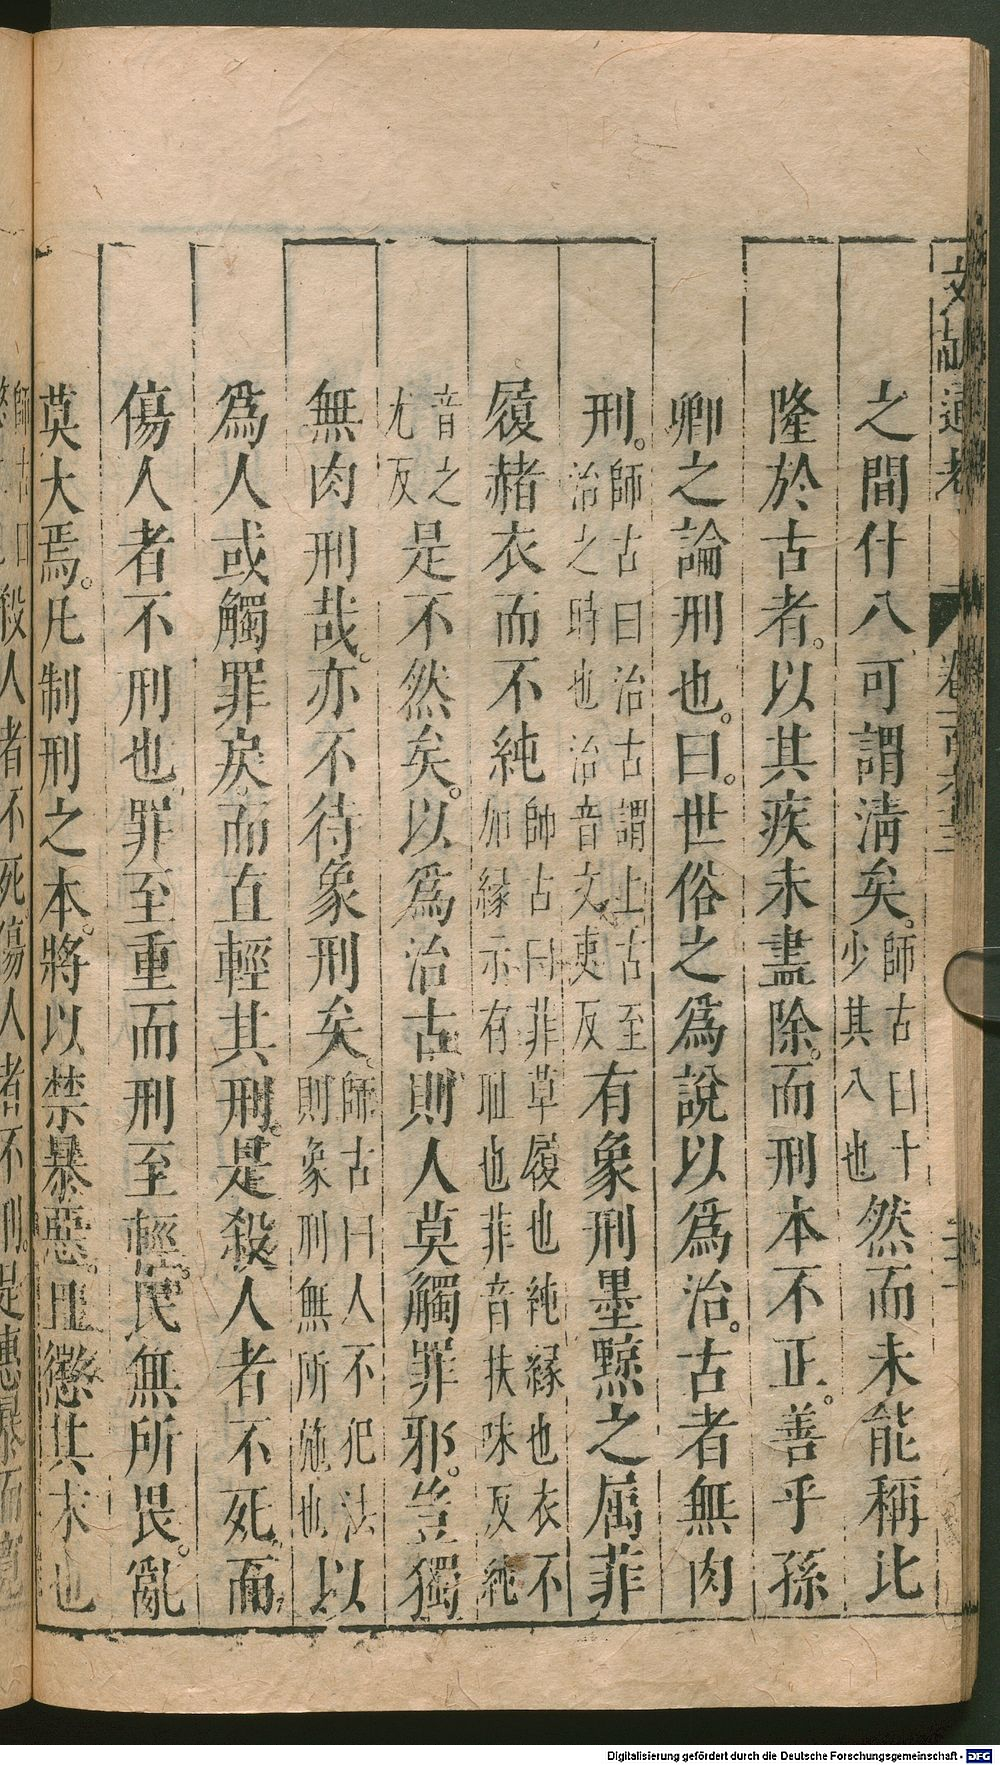 之間什八可謂清矣。師古曰十少其八也然而未能稱比
隆於古者。以其疾未盡除。而刑本不正。善乎孫
卿之論刑也。曰。世俗之爲說以爲治。古者無肉
刑。師古曰治古謂上古至治之時也治音文吏反有象刑墨黥之屬菲
履赭衣而不純師古曰菲草履也純緣也衣不加緣示有恥也菲音扶味反純
音之尤反是不然矣。以爲治古則人莫觸罪邪。豈獨
無肉刑哉。亦不待象刑矣。師古曰人不犯法則象刑無所施也以
爲人或觸罪戾。而直輕其刑。是殺人者不死。而
傷人者不刑也。罪至重而刑至輕。民無所畏。亂
莫大焉。凡制刑之本。將以禁暴惡。且懲其末也
殺人者不死傷人者不刑。是惠暴而寬
Digitalisierung gefördert durch die Deutsche Forschungsgemeinschaft - DFG